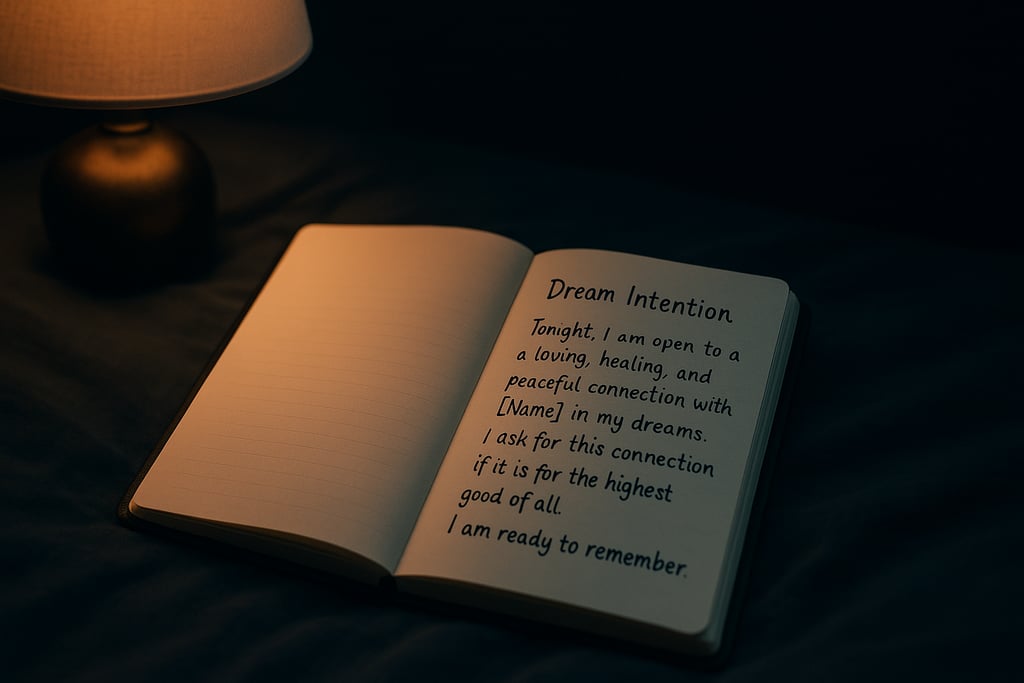 Dream Intention
Tonight, I am open to a
a loving, healing, and
peaceful connection with
[Name] in my dreams.
I ask for this connection
if it is for the highest
good of all.
I am ready to remember.